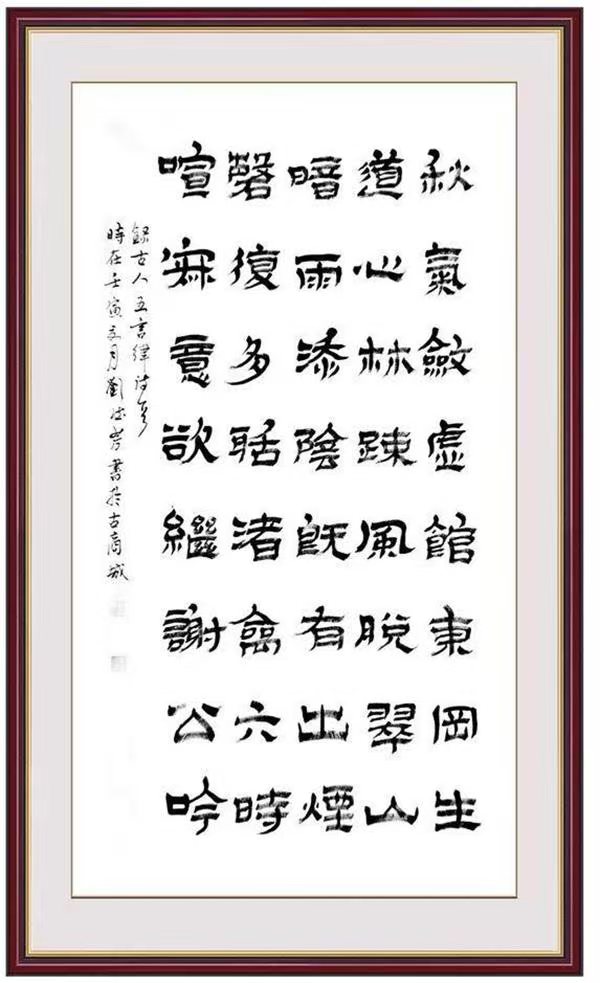 秋氣斂虛館東岡生
道心林疎風脫翠山
暗雨添陰既有出煙
磬復多聒渚禽六時
喧寂意欲繼謝公吟
錄古人五言律詩一首
時在壬寅五月劉書於古商城